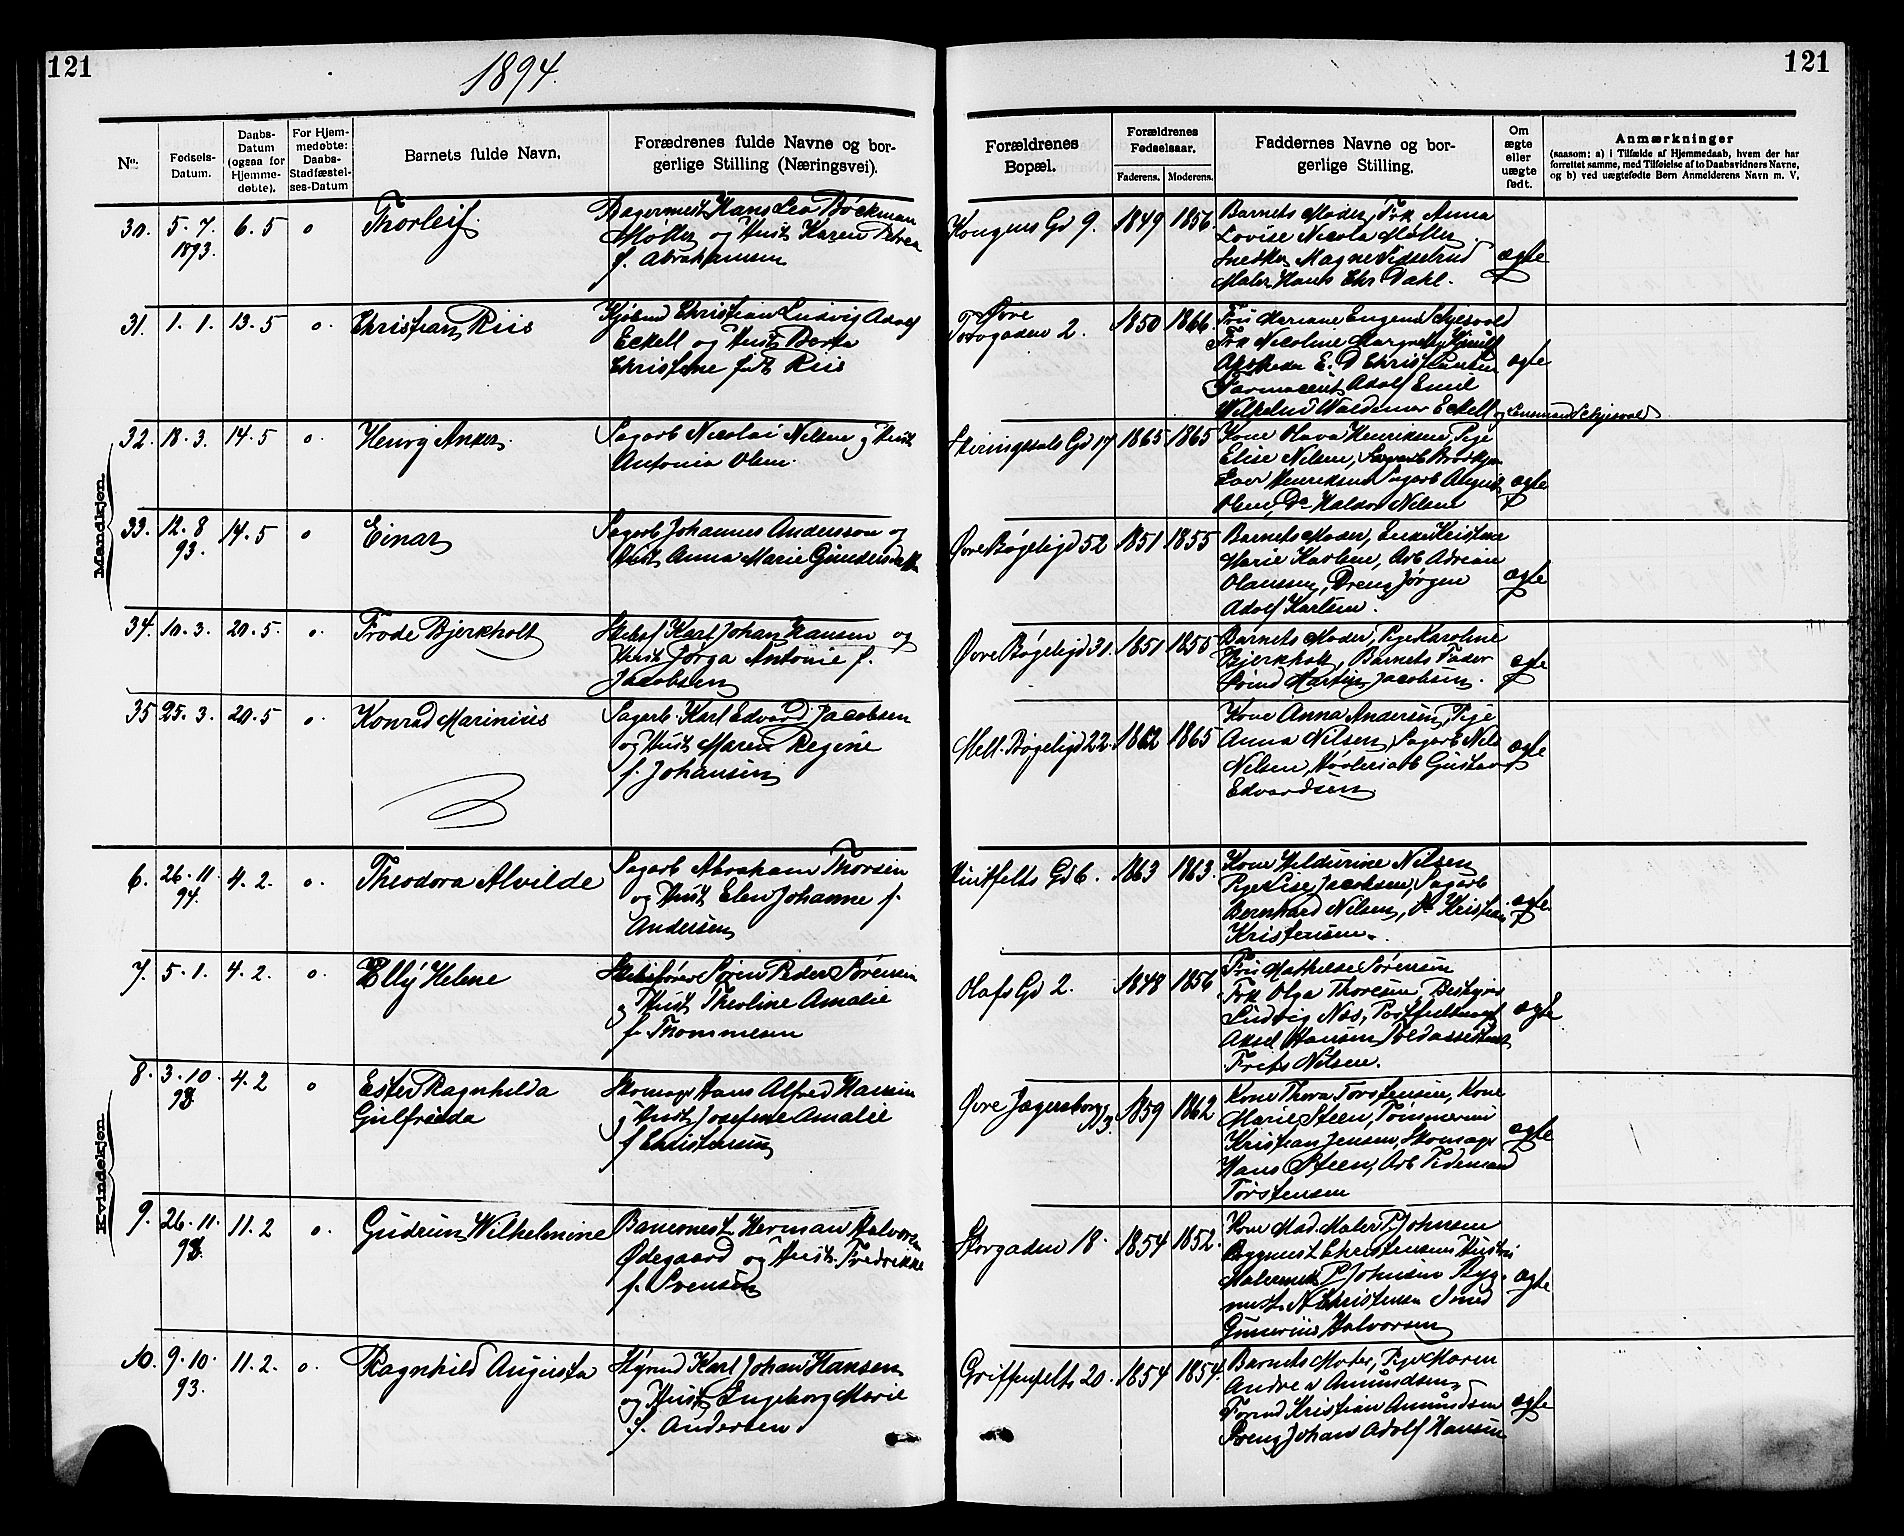 121
1894.
121
No:
Fødsels-
Datum.
Daabs-
Datum
(ogsaa for
Hjemme-
døbte).
For Hjem-
medøbte:
Daabs-
Stadfæstel-
ses-Datum
Barnets fulde Navn.
Forædrenes fulde Navne og bor-
gerlige Stilling (Næringsvei).
Forældrenes
Bopæl.
Forældrenes
Fødselsaar.
Faderens. Moderens.
Faddernes Navne og bor-
gerlige Stilling.
Om
ægte
eller
uægte
født.
Anmærkninger
(saasom: a) i Tilfælde af Hjemmedaab, hvem der har
forrettet samme, med Tilføielse af to Daabsvidners Navne,
og b) ved uægtefødte Børn Anmelderens Navn m. V.
Mandkjøn.
30. 5. 7. 1893. 6. 5 o Thorleif.
Bagermest Hans Leo Böckman
Møller og Hust Karen Petrea
f. Abrahamsen
Kongens Gd 9. 1849 1856.
Barnets Moder, Frk Anna
Lovise Nicola Møller
Snedker Magne
Maler Hans Chr Dahl.
ægte
31. 1. 1. 13. 5 o. Christian Riis
Kjøbmd Christian Ludvig Adolf
Eckell og Hust Berta
Christine født Riis
Øvre
Torvgaden 2. 1850 1866
Fru Mariane Eugene
Frk Nicoline Margrethe
Apotheker E. D Christiansen
Farmaceut Adolf Emil
Wilhelm Waldemar Eckell og Lensmand
ægte
32. 18. 3. 14. 5 o. Henry Anker.
Sagarb Nicolai Nilsen og Hust
Antonia Olsen.
Skiringssals Gd 17 1865 1865
Kone Olava Henriksen, Pige
Elise Nilsen, Sagarb
Henriksen Sagarb August
Olsen, Do Haldor Nilsen
ægte
33. 12. 8 93. 14. 5 o Einar
Sagarb Johannes Andersson og
Hust Anna Marie
Øvre Bøgeligd 52 1851 1855
Barnets Moder, Enke Kristine
Marie Karlsen, Arb Adrian
Olaussen, Dreng Jørgen
Adolf Karlsen.
ægte
34. 10. 3. 20. 5. o. Frode Bjerkholt
Karl Johan Hansen og
Hust Jørga Antonie f.
Jacobsen
Øvre Bøgeligd 31. 1851 1855
Barnets Moder, Pige Karoline
Bjerkholt, Barnets Fader
Martin Jacobsen.
ægte
35 25. 3. 20. 5 o. Konrad Marinius
Sagarb. Karl Edvard Jacobsen
og Hust Maren Regine
f. Johansen
Mell. Bøgeligd 22. 1862 1865
Kone Anna Andersen, Pige
Anna Nilsen, Sagarb Nils
Nilsen, Gustav
Edvardsen
ægte
Kvindekjøn.
6. 26. 11. 94. 4. 2. o. Theodora Alvilde
Sagarb Abraham Thorsen
og Hust Elen Johanne f.
Andersen
Huitfelts Gd 6. 1863 1863.
Kone Nilsen
Pige Lise Jacobsen, Sagarb
Bernhard Nilsen, Do Kristian
Kristensen.
ægte
7. 5. 1. 4. 2. o. Elly Helene
Skibsfører Søren Peder Sørensen
og Hust Theoline Amalie
f. Thommesen
Olafs Gd 2. 1848 1856
Fru Mathilde Sørensen
Frk Olga Thoresen, Bestyrer
Ludvig Næs, Postfuldmægt
Aksel Hansen, Toldassistent
Frits Nilsen.
ægte
8. 3. 10. 93 4. 2 o Ester Ragnhilda
Gulfrida
Skomagr Hans Alfred Hansen
og Hust Josefine Amalie
f Christensen
Øvre Jægersborg 13. 1859 1862
Kone Thora Torstensen, Kone
Marie Steen, Tømmermd
Kristian Jensen, Skomagr
Hans Steen, Arb Tidemand
Torstensen
ægte
9. 26. 11. 93. 11. 2 o. Gudrun Wilhelmine
Herman Halvorsen
Ødegaard og Hust. Fredrikke
f. Svensen
Storgaden 18. 1854 1852.
Kone Mad. Maler P. Johnsen
Byggmest Christensens Hustru
Malermest P Johnsen Byg-
mest. N Christensen
Halvorsen
ægte
10. 9. 10. 93. 11. 2. o. Ragnhild Augusta
Styrmd Karl Johan Hansen
og Hust Engeborg Marie
f. Andersen
Griffenfelts 20. 1854 1854.
Barnets Moder, Pige Maren
Andrea Amundsen,
Kristian Amundsen
Dreng Johan Adolf Hansen
ægte